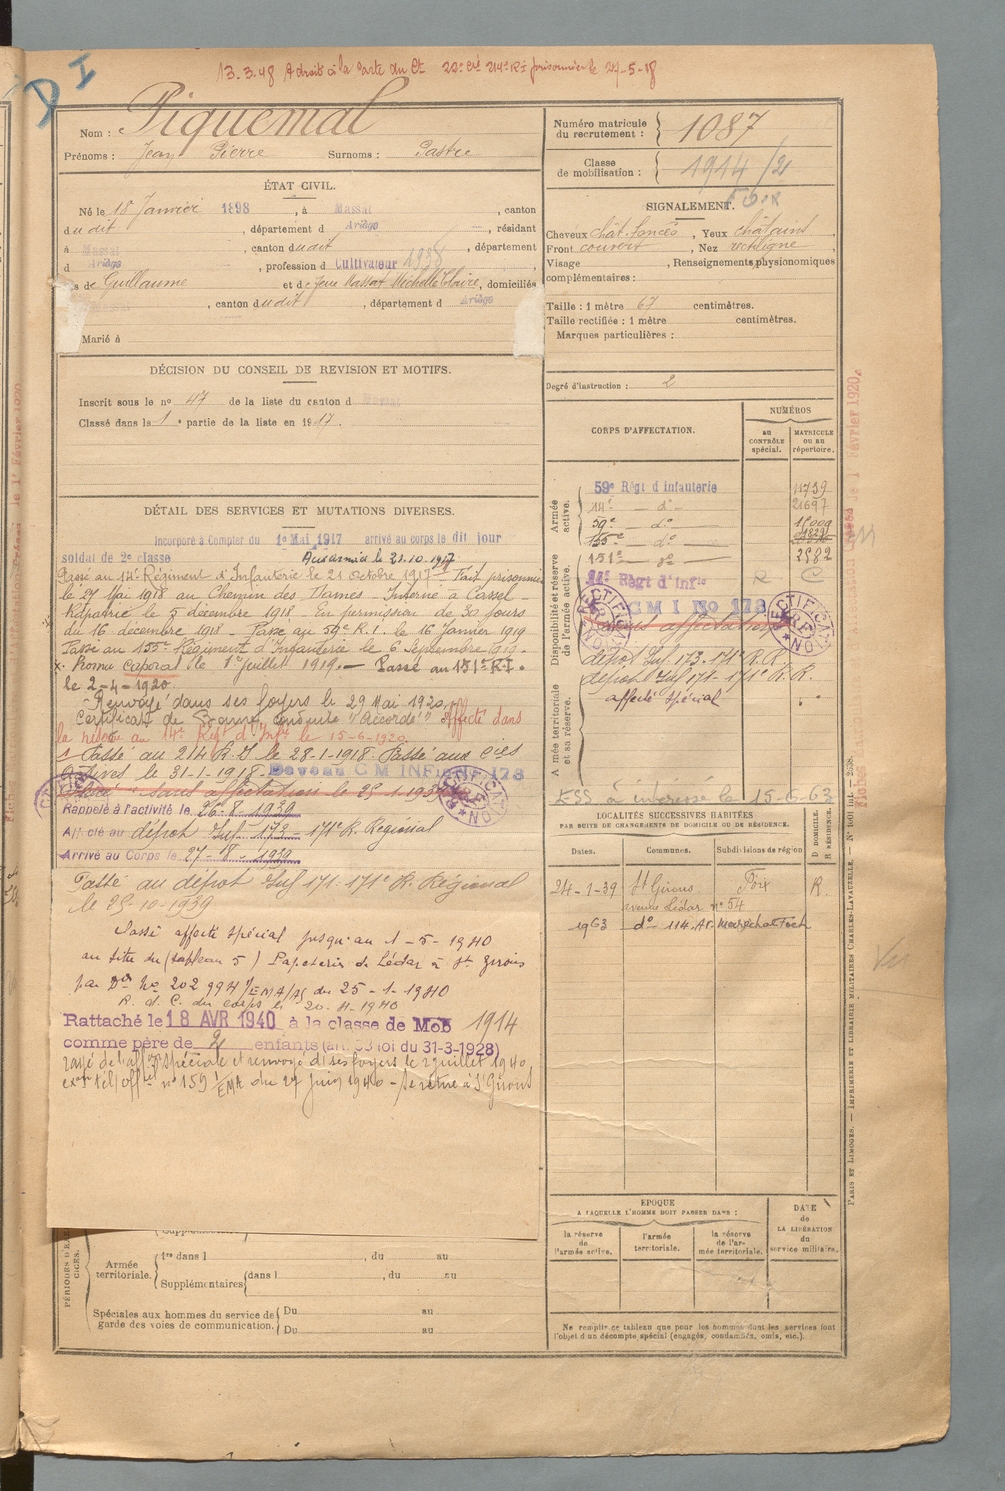 D I
13.3.48 A droit à la carte du Ct 20e Cie 214e R.I. prisonnier le 27-5-18
Nom : Piquemal
Prénoms : Jean Pierre Surnoms : Pastre
ÉTAT CIVIL.
Né le 18 Janvier 1898, à Massat, canton
dudit, département d Ariège, résidant
à Massat, canton dudit, département
d Ariège, profession d Cultivateur
fils de Guillaume et de, domiciliés
, canton dudit, département d Ariège
Marié à
DÉCISION DU CONSEIL DE REVISION ET MOTIFS.
Inscrit sous le no 47 de la liste du canton d Massat
Classé dans la 1e partie de la liste en 1917.
DÉTAIL DES SERVICES ET MUTATIONS DIVERSES.
Incorporé à Compter du 1er Mai 1917 arrivé au corps le dit jour
soldat de 2e classe Aux armées le 31.10.1917
Passé au 14e Régiment d'Infanterie le 21 octobre 1917. Fait prisonnier
le 27 Mai 1918 au Chemin des Dames - Interné à Cassel -
Rapatrié le 5 décembre 1918 En permission de 30 jours
du 16 décembre 1918 - Passé au 59e R.I. le 16 Janvier 1919
Passé au 135e Régiment d'Infanterie le 6 Septembre 1919.
x. Nommé Caporal le 1er juillet 1919. — Passé au 151e R.I.
le 2-4-1920.
Renvoyé dans ses foyers le 29 Mai 1920
Certificat de Bonne Conduite "Accordé" Affecté dans
la réserve au 14e Régt d'Infie le 15-6-1920.
Passé au 214 R.I. le 28-1-1918. Passé aux Cies
actives le 31-1-1918 - Devenu C M INFie No 173
Placé sans affectation le 25-1-1939
RECTIFICATION
Rappelé à l'activité le 26-8-1939
Affecté au dépôt Inf 173 - 171e R. Régional
Arrivé au Corps le 27-8-1939
Passé au dépôt Inf 171-171e R. Régional
le 25-10-1939
Passé affecté spécial jusqu'au 1-5-1940
au titre du (tableau 5) Papeterie de Lédar à St Girons
par Don No 202 994/EMA/AS du 25-1-1940
R. d. C. du corps le 20-4-1940
Rattaché le 18 AVR 1940 à la classe de Mob 1914
comme père de 2 enfants (art. 58 loi du 31-3-1928)
rayé de l'affon spéciale et renvoyé ds ses foyers le 2 juillet 1940
exon tél. offel no 159 1/EMA du 27 juin 1940 - Se retire à St Girons
PÉRIODES D'EXERCICES.
Armée territoriale. 1re dans l , du au
Supplémentaires dans l , du au
Spéciales aux hommes du service de garde des voies de communication. Du au
Du au
Numéro matricule du recrutement : 1087
Classe de mobilisation : 1914 /21
Foix
SIGNALEMENT.
Cheveux chât. foncés, Yeux châtains
Front couvert, Nez rectiligne
Visage , Renseignements physionomiques
complémentaires :
Taille : 1 mètre 67 centimètres.
Taille rectifiée : 1 mètre centimètres.
Marques particulières :
Degré d'instruction : 2
CORPS D'AFFECTATION.
NUMÉROS
au CONTRÔLE spécial.
MATRICULE OU AU répertoire.
Armée active.
59e Régt d Infanterie
14e — do — 21697
59e — do —
135e — do —
151e — do — 2582
Disponibilité et réserve de l'armée active.
14e Régt d'Infie R C
C M I No 173
Sans affectation
RECTIFICATION
RECTIFICATION
dépôt Inf. 173. 171e R.R.
dépôt Inf 171 - 171e R.R.
affecté spécial
Armée territoriale et sa réserve.
ESS à intéressé le 15-6-63
LOCALITÉS SUCCESSIVES HABITÉES
PAR SUITE DE CHANGEMENTS DE DOMICILE OU DE RÉSIDENCE.
Dates. Communes. Subdivisions de région D DOMICILE. R RÉSIDENCE.
24-1-39 St Girons Foix R.
avenue Lédar no 54
1963 do 114. Av. Maréchal Foch
EPOQUE
A LAQUELLE L'HOMME DOIT PASSER DANS :
la réserve de l'armée active.
l'armée territoriale.
la réserve de l'armée territoriale.
DATE de LA LIBÉRATION du service militaire.
Ne remplir ce tableau que pour les hommes dont les services font
l'objet d'un décompte spécial (engagés, condamnés, omis, etc.).
PARIS ET LIMOGES. — IMPRIMERIE ET LIBRAIRIE MILITAIRES CHARLES-LAVAUZELLE.